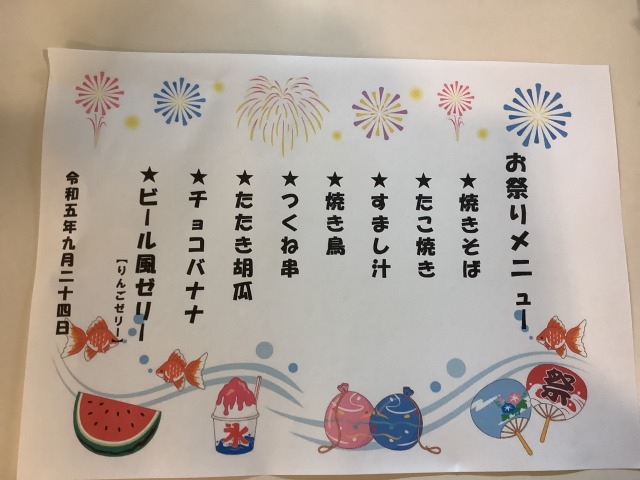 お祭りメニュー
★焼きそば
★たこ焼き
★すまし汁
★焼き鳥
★つくね串
★たたき胡瓜
★チョコバナナ
★ビール風ゼリー
[りんごゼリー]
令和五年九月二十四日
氷
祭